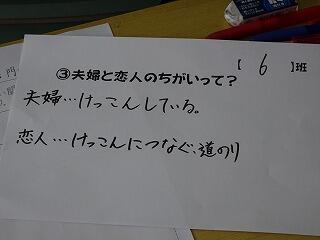 【 6 】班
③夫婦と恋人のちがいって?
夫婦…けっこんしている。
恋人…けっこんにつなぐ、道のり